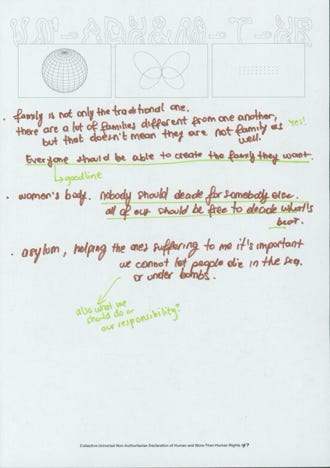 • family is not only the traditional one.
there are a lot of families different from one another,
but that doesn't mean they are not family as
well. yes!
Everyone should be able to create the family they want.
↳ good line
• women's body. nobody should decide for somebody else.
all of our should be free to decide what's
best.
• asylum, helping the ones suffering to me it's important
we cannot let people die in the sea
or under bombs.
also what we
should do is
our responsibility?
Collective Universal Non-Authoritarian Declaration of Human and More-Than-Human Rights